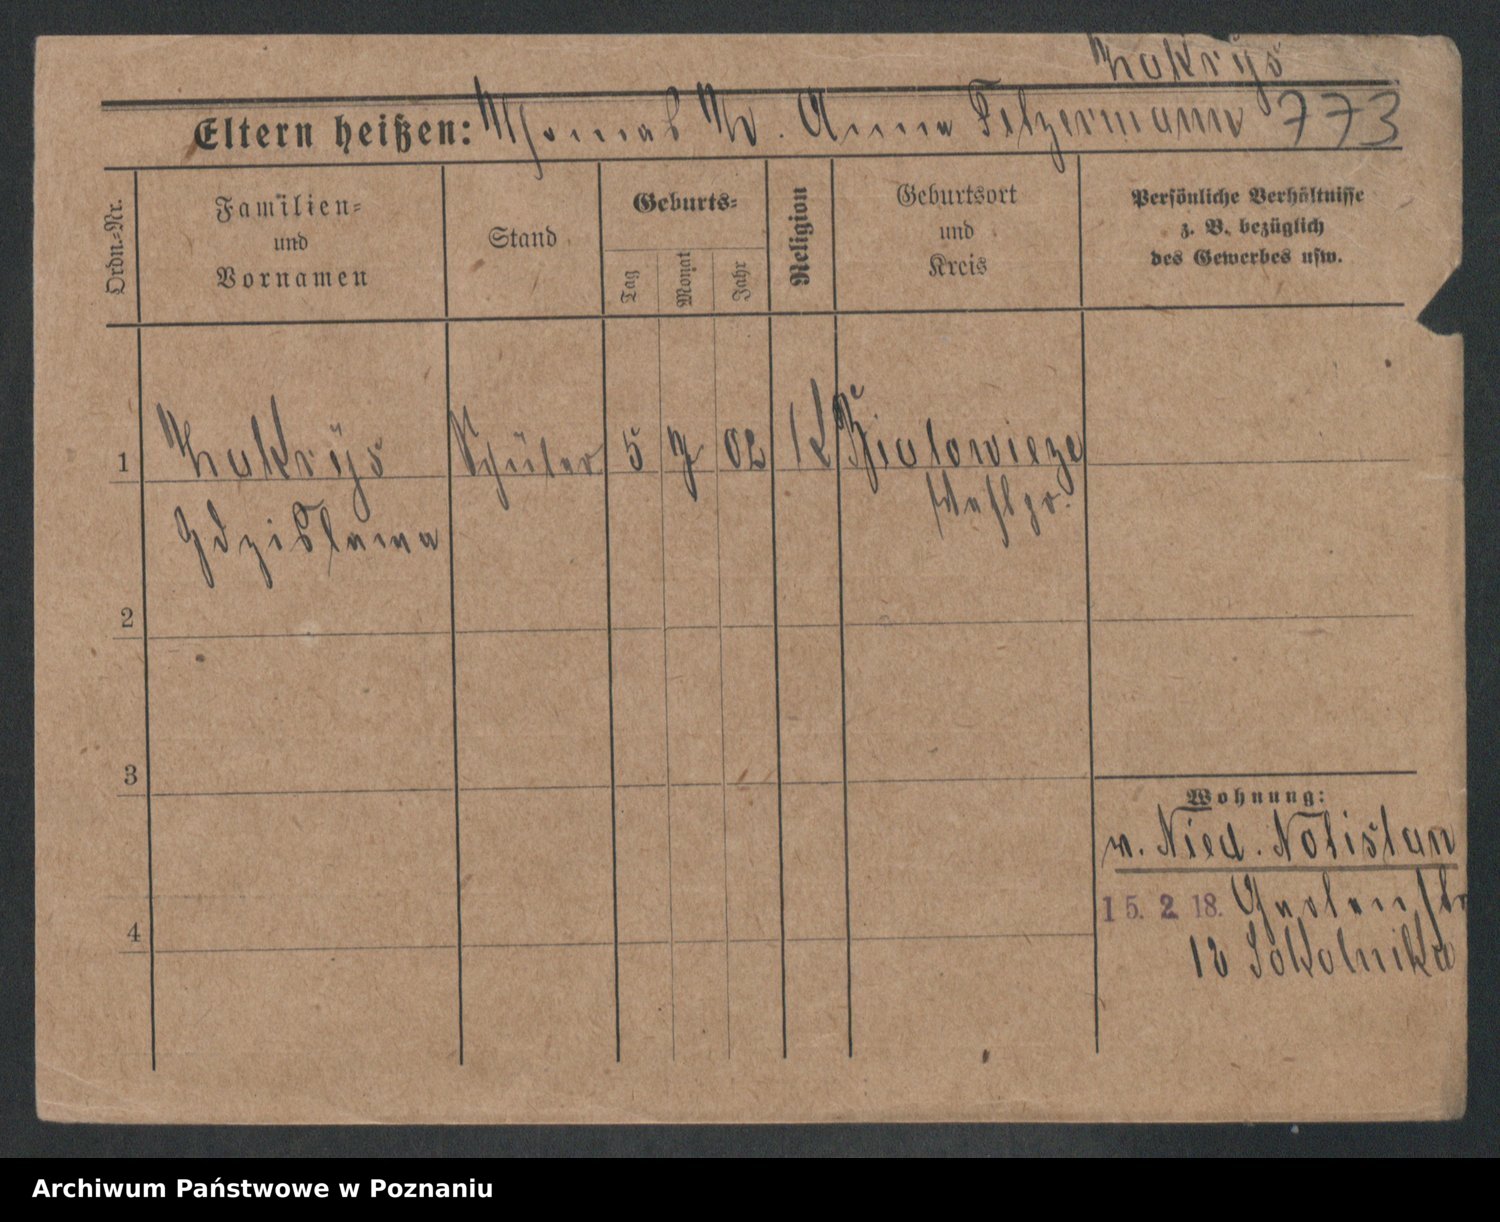 Zakrys
Eltern heißen: Thomas Anna 773
Ordn.-Nr.
Familien-
und
Vornamen
Stand
Geburts-
Tag
Monat
Jahr
Religion
Geburtsort
und
Kreis
Persönliche Verhältnisse
z. B. bezüglich
des Gewerbes usw.
1 Zakrys Schüler 5 02 K
2
3
Wohnung:
v. Nied.
15. 2. 18. Gartenstr
4
12 Sokolnika
Archiwum Państwowe w Poznaniu